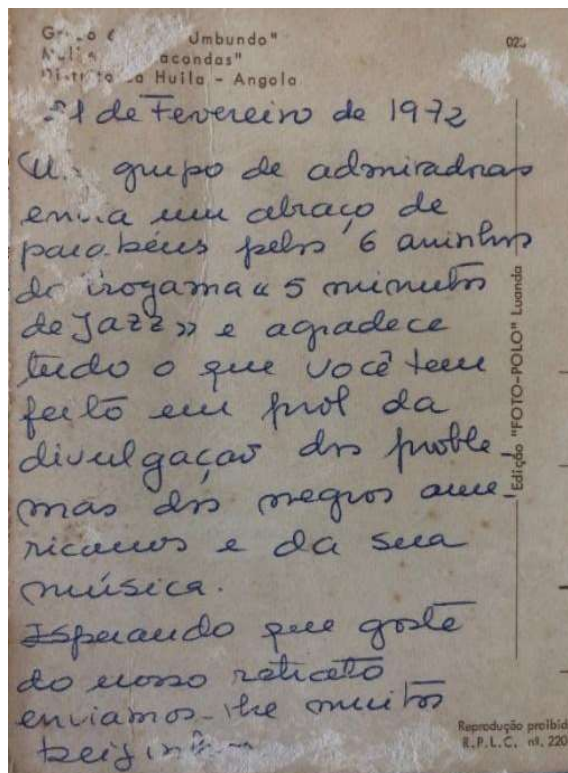 Umbundo"
023
Distrito da Huila - Angola
21 de Fevereiro de 1972
Um grupo de admiradoras
envia um abraço de
parabéns pelos 6 aninhos
do programa « 5 minutos
de Jazz » e agradece
tudo o que você tem
feito em prol da
divulgação dos proble-
mas dos negros ame-
ricanos e da sua
música.
Esperando que goste
do nosso retrato
enviamos-lhe muitos
beijinhos
Edição "FOTO-POLO" Luanda
Reprodução proibid
R.P.L.C. nº. 220